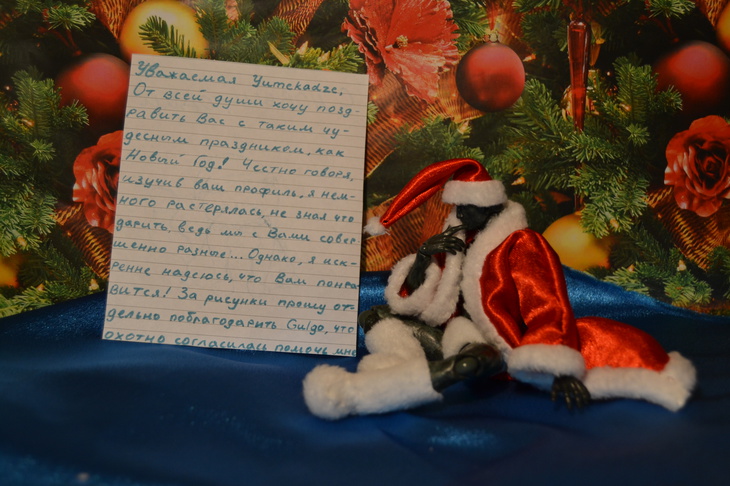 Уважаемая Yumckadze,
От всей души хочу позд-
равить Вас с таким чу-
десным праздником, как
Новый Год! Честно говоря,
изучив ваш профиль, я нем-
ного растерялась, не зная что
дарить, ведь мы с Вами совер
шенно разные... Однако, я иск-
ренне надеюсь, что Вам понра
вится! За рисунки прошу от-
дельно поблагодарить Gulgo, что
охотно согласилась помочь мне